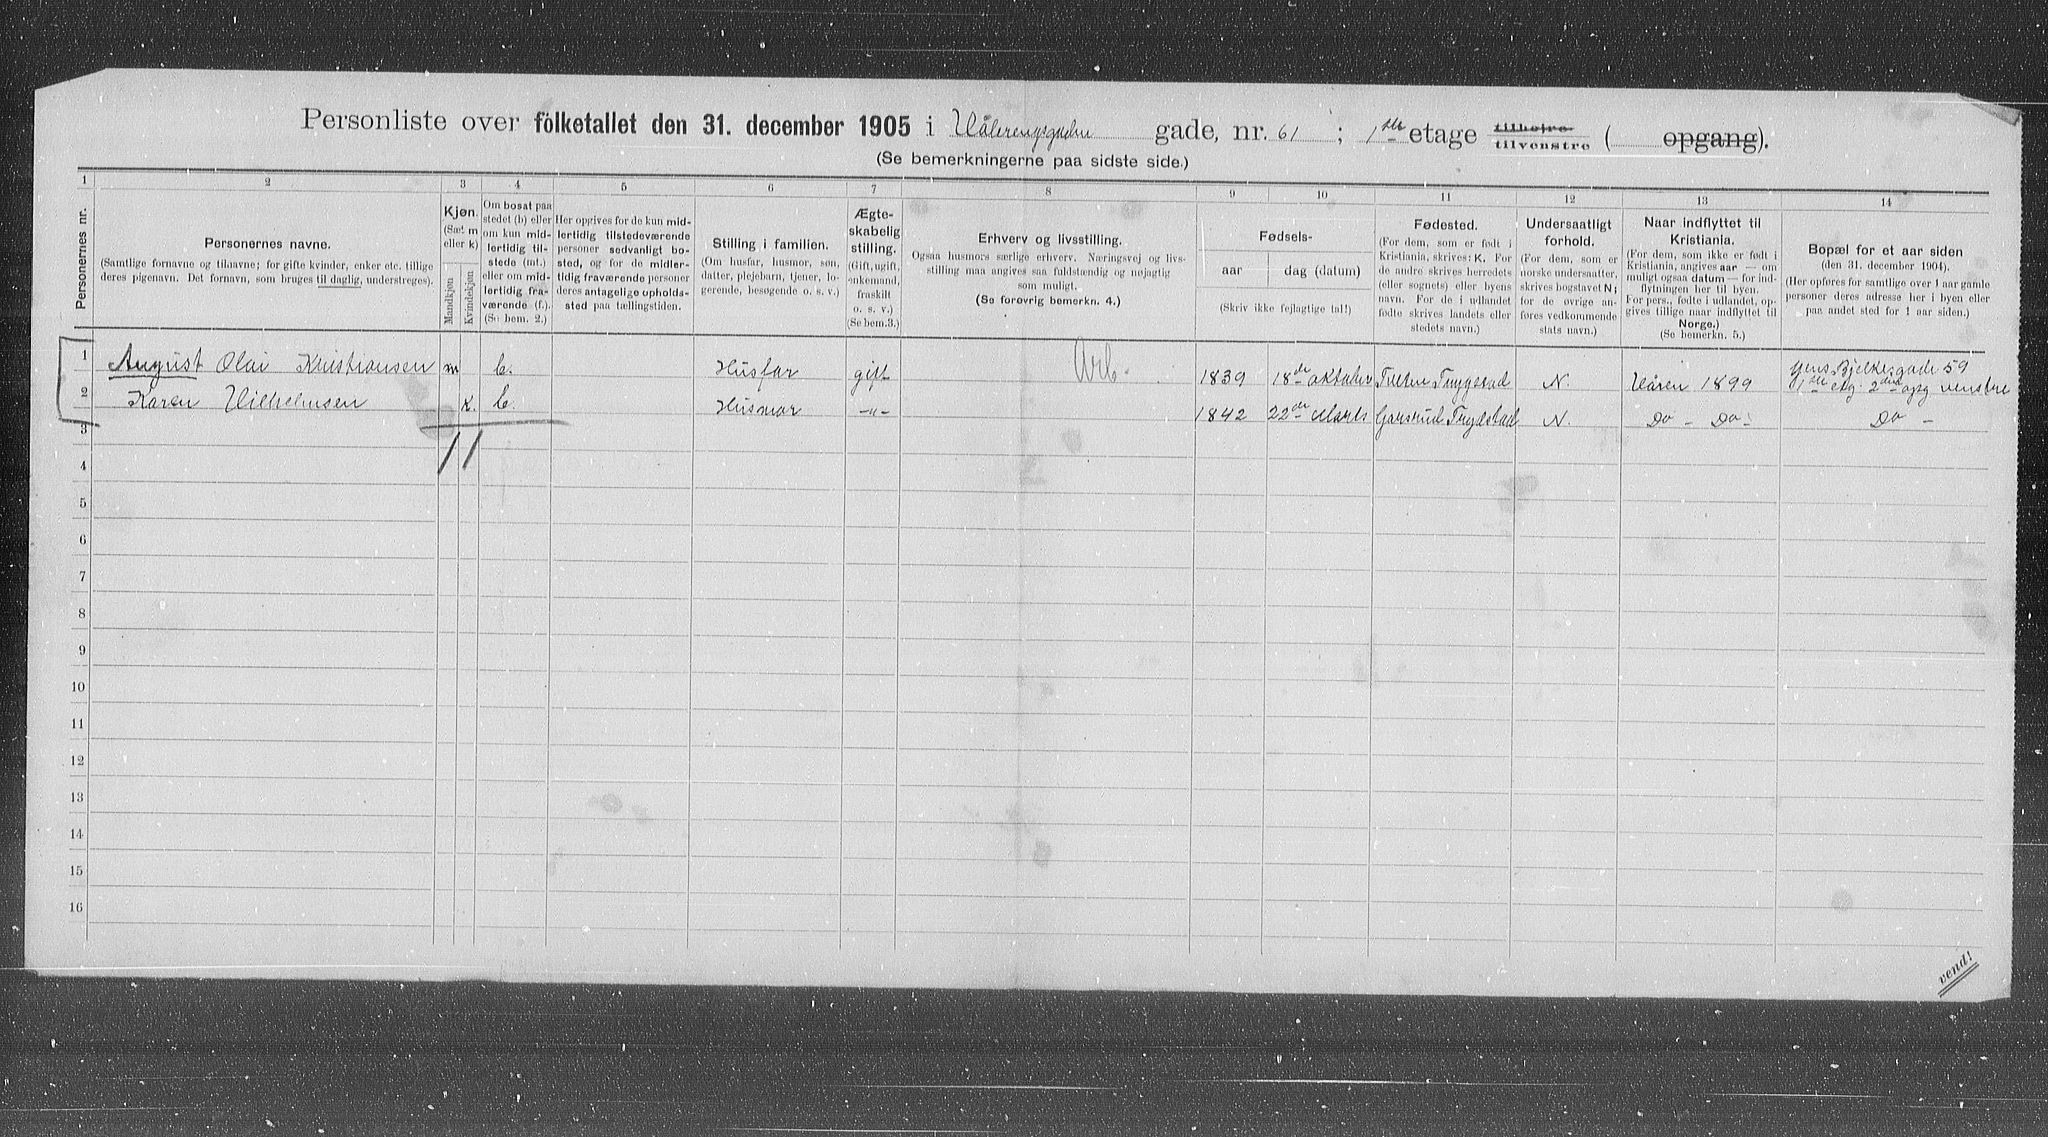 Personliste over folketallet den 31. december 1905 i Vålerengsgaden gade, nr. 61 ; 1ste etage tilhøjre tilvenstre ( opgang).
(Se bemerkningerne paa sidste side.)
1 2 3 4 5 6 7 8 9 10 11 12 13 14
Personernes nr.
Personernes navne.
(Samtlige fornavne og tilnavne; for gifte kvinder, enker etc. tillige
deres pigenavn. Det fornavn, som bruges til daglig, understreges).
Kjøn.
(Sæt m
eller k)
Mandkjøn
Kvindekjøn
Om bosat paa
stedet (b) eller
om kun mid-
lertidig til-
stede (mt.)
eller om mid-
lertidig fra-
værende (f.).
(Se bem. 2.)
Her opgives for de kun mid-
lertidig tilstedeværende
personer sedvanligt bo-
sted, og for de midler-
tidig fraværende personer
deres antagelige opholds-
sted paa tællingstiden.
Stilling i familien.
(Om husfar, husmor, søn,
datter, plejebarn, tjener, lo-
gerende, besøgende o. s. v.)
Ægte-
skabelig
stilling.
(Gift, ugift,
enkemand,
fraskilt
o. s. v.)
(Se bem.3.)
Erhverv og livsstilling.
Ogsaa husmors særlige erhverv. Næringsvej og livs-
stilling maa angives saa fuldstændig og nøjagtig
som muligt.
(Se forøvrig bemerkn. 4.)
Fødsels-
aar dag (datum)
(Skriv ikke fejlagtige tal!)
Fødested.
(For dem, som er født i
Kristiania, skrives: K. For
de andre skrives herredets
(eller sognets) eller byens
navn. For de i udlandet
fødte skrives landets eller
stedets navn.)
Undersaatligt
forhold.
(For dem, som er
norske undersaatter,
skrives bogstavet N;
for de øvrige an-
føres vedkommende
stats navn.)
Naar indflyttet til
Kristiania.
(For dem, som ikke er født i
Kristiania, angives aar — om
muligt ogsaa datum — for ind-
flytningen her til byen.
For pers., fødte i udlandet, op-
gives tillige naar indflyttet til
Norge.)
(Se bemerkn. 5.)
Bopæl for et aar siden
(den 31. december 1904).
(Her opføres for samtlige over 1 aar gamle
personer deres adresse her i byen eller
paa andet sted for 1 aar siden.)
1 August Olai Kristiansen m b. Husfar gift Arb. 1839 18de oktober Trygstad N. Våren 1899 Jens Bjelkesgade 59
1ste etg. 2den opg venstre
2 Karen Vilhelmsen K. b. Husmor -"- 1842 22de Marts Trygstad N. Do - Do - Do -
3
4
5
6
7
8
9
10
11
12
13
14
15
16
vend!